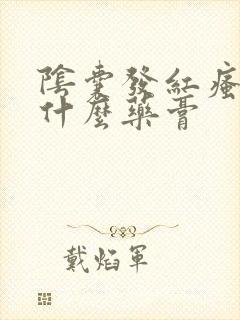 陰囊發紅瘙
什麼藥膏
戴焰軍